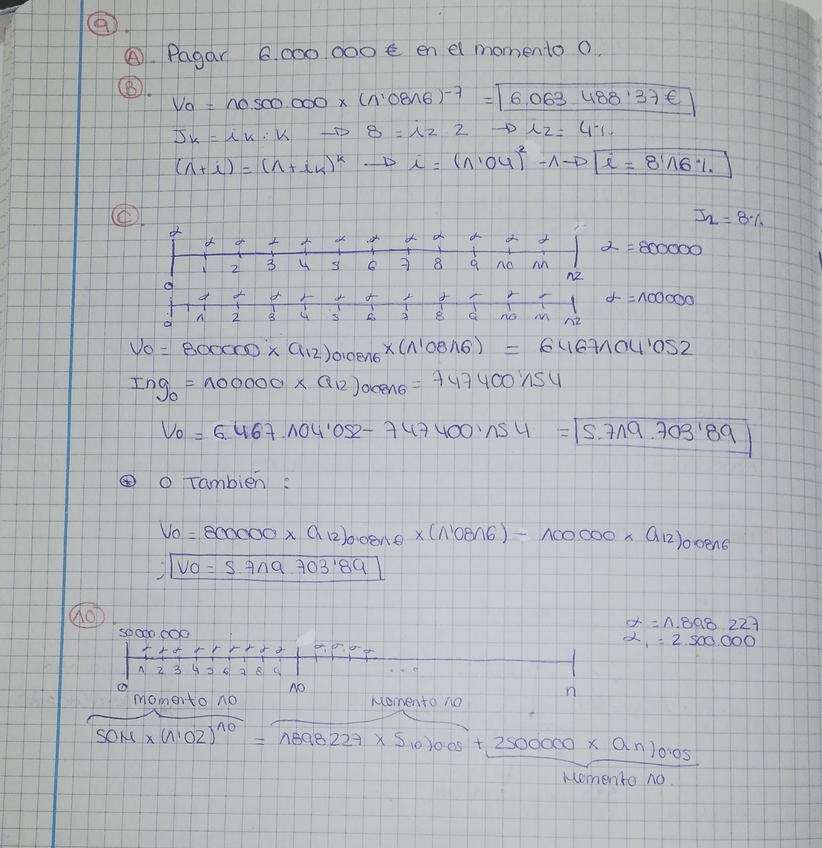 9.
A. Pagar 6.000.000 € en el momento 0.
B.
V0 = 10.500.000 × (1'0816)^-7 = 6.063.488'37 €
Jk = ik · k → 8 = i2 2 → i2 = 4%.
(1+i) = (1+ik)^k → i = (1'04)^2 - 1 → i = 8'16%.
C.
J2 = 8%
α α α α α α α α α α α α α = 800000
0 1 2 3 4 5 6 7 8 9 10 11 12
α α α α α α α α α α α α = 100000
0 1 2 3 4 5 6 7 8 9 10 11 12
V0 = 800000 × a12)0'0816 × (1'0816) = 6467104'052
Ing0 = 100000 × a12)0'0816 = 747400'154
V0 = 6.467.104'052 - 747400'154 = 5.719.703'89
⊛ O También :
V0 = 800000 × a12)0'0816 × (1'0816) - 100.000 × a12)0'0816
; V0 = 5.719.703'89
10
α = 1.898.227
50000.000
α1 = 2.500.000
α α α α α α α α α α α α α
0 1 2 3 4 5 6 7 8 9 10 ... n
momento 10 Momento 10
50M × (1'02)^10 = 1898227 × S10)0'05 + 2500000 × an)0'05
Momento 10.